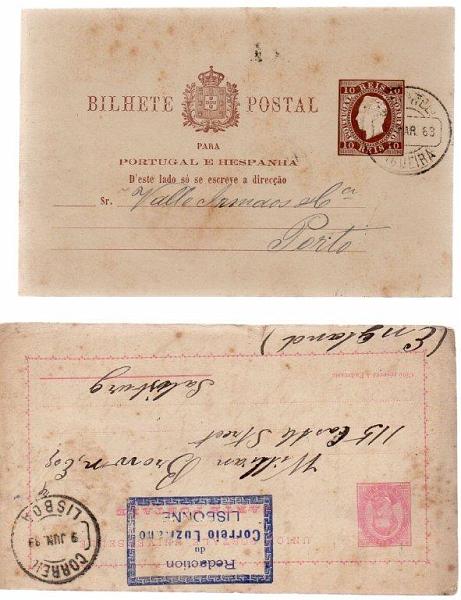 10 REIS 10
BILHETE POSTAL
PARA
PORTUGAL E HESPANHA
D'este lado só se escreve a direcção
10 REIS 10
Sr. Valle Irmãos & Cª
Porto
MAR. 83
FIGUEIRA
William Brown, Esq
115 Castle Street
Salisbury
(England)
Redaction
du
Correio Luzitano
LISBONNE
CORREIO
9 JUN. 93
LISBOA